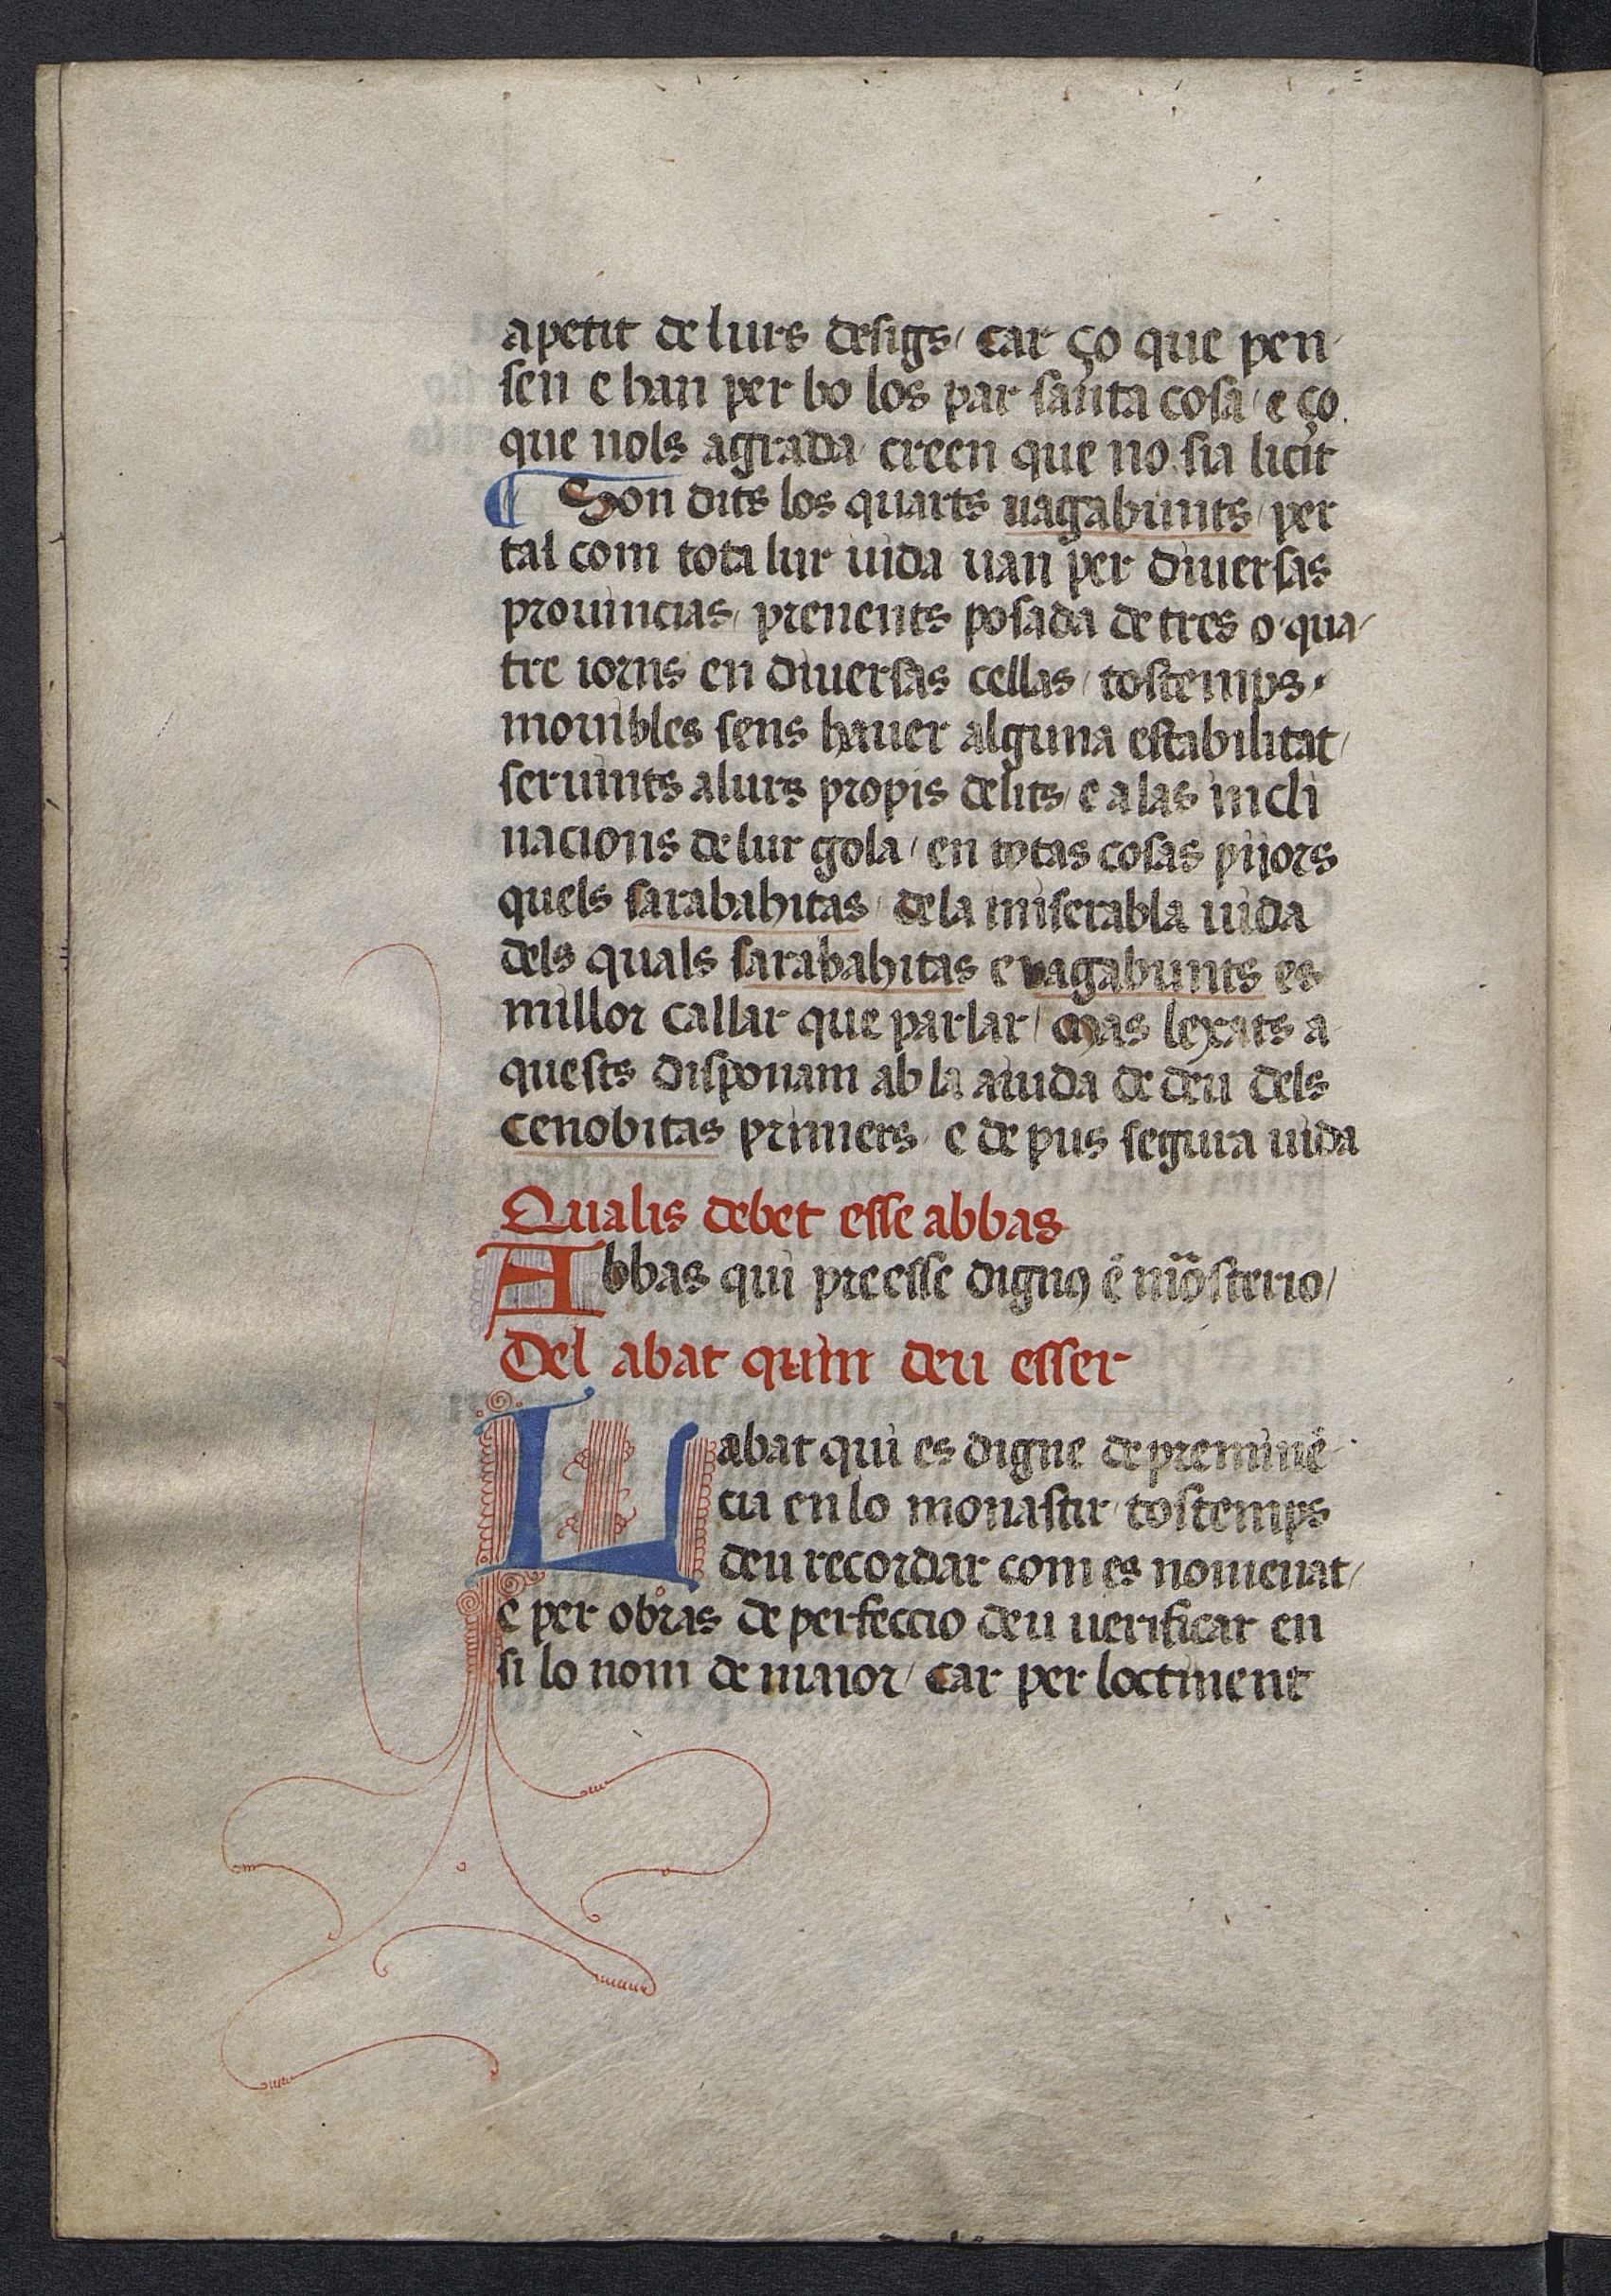 apetit de lurs desigs / Car ço que pen
sen e han per bo los par sancta cosa / e ço
que nols agrada creen que no sia licit
¶ Son dits los quarts uagabunts / per
tal com tota lur uida uan per diuersas
prouincias / prenents posada de tres o qua
tre iorns en diuersas cellas / tostemps
mouibles sens hauer alguna estabilitat /
seruints a lurs propis delits / e a las incli
nacions de lur gola / en totas cosas piiors
quels sarabahitas / de la miserabla uida
dels quals sarabahitas e vagabunts es
millor callar que parlar / Mas lexats a
quests disponam ab la aiuda de deu dels
cenobitas primers / e de pus segura uida
Qualis debet esse abbas
Abbas qui preesse dignꝰ ē mōsterio /
Del abat quin deu esser
Labat qui es digne de preminē
cia en lo monastir / tostemps
deu recordar com es nomenat /
e per obras de perfeccio deu uerificar en
si lo nom de maior / Car per loctinent